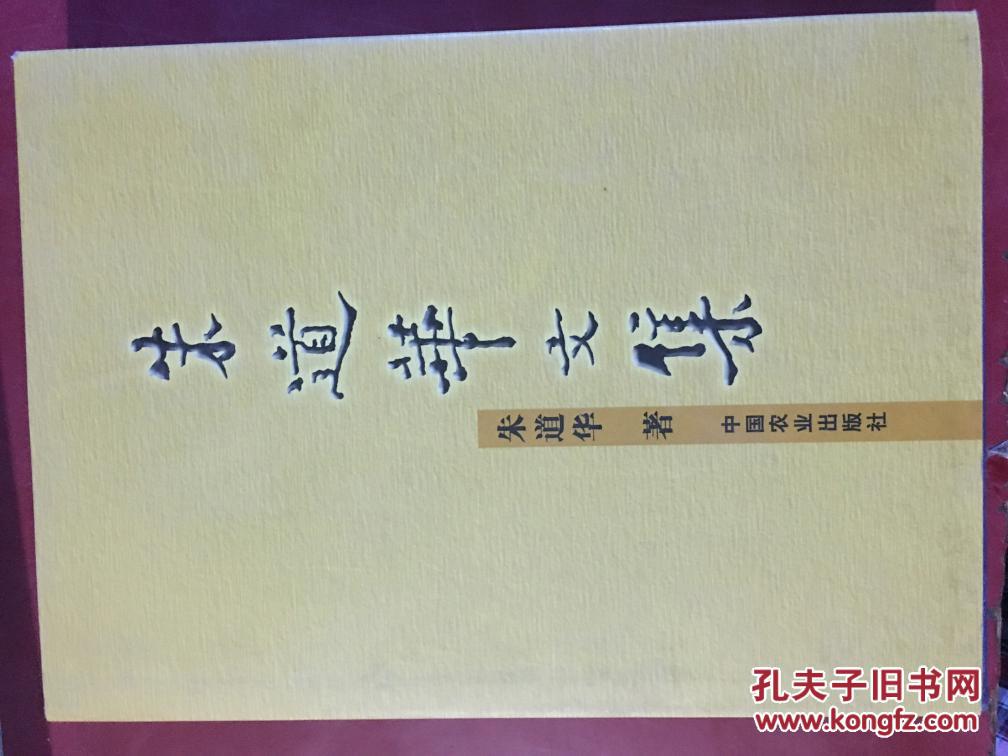 朱道華文集
朱道华 著 中国农业出版社
孔夫子旧书网
www.kongfz.com